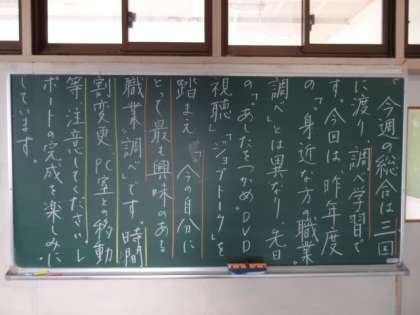 今週の総合は三回
に渡り、調べ学習で
す。今回は、昨年度
の「身近な方の職業
調べ」とは異なり、先日
の「あしたをつかめ」DVD
視聴、「ジョブトーク」を
踏まえ、「今の自分に
とって最も興味のある
職業」調べです。時間
割変更、PC室との移動
等、注意してください。レ
ポートの完成を楽しみに
しています。